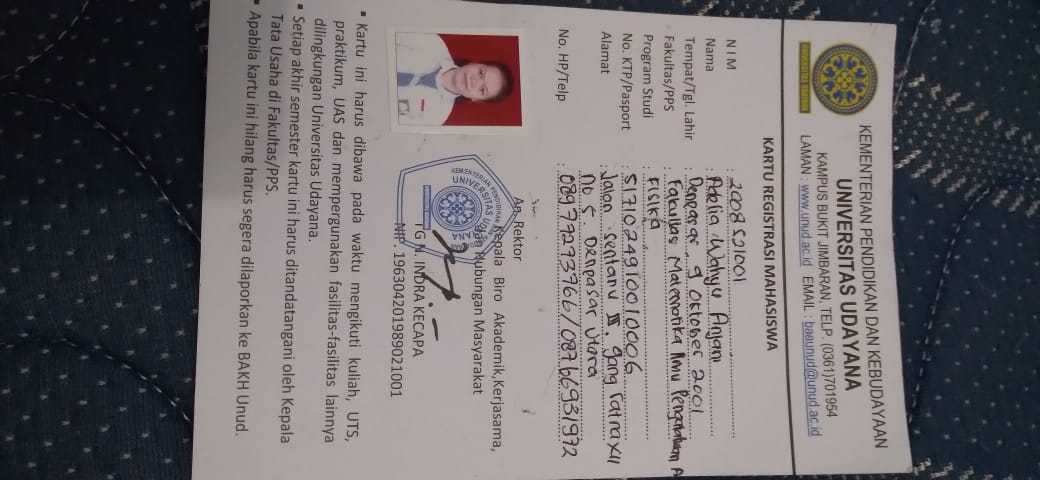 KEMENTERIAN PENDIDIKAN DAN KEBUDAYAAN
UNIVERSITAS UDAYANA
KAMPUS BUKIT JIMBARAN, TELP : (0361)701954
LAMAN : www.unud.ac.id EMAIL : baeunud@unud.ac.id
UNIVERSITAS UDAYANA
KARTU REGISTRASI MAHASISWA
N I M : 2008521001
Nama : Adelia Wahyu Anjani
Tempat/Tgl. Lahir : Denpasar, 9 Oktober 2001
Fakultas/PPS : Fakultas Matematika Ilmu Pengetahuan A
Program Studi : Fisika
No. KTP/Pasport : 5171024910010006
Alamat : Jalan Sentanu III. gang Ratna XII
No 5. Denpasar Utara
No. HP/Telp : 08979293766/087666931972
An. Rektor
Kepala Biro Akademik,Kerjasama,
dan Hubungan Masyarakat
KEMENTERIAN PENDIDIKAN
UNIVERSITAS UDAYANA
TG N. INDRA KECAPA
NIP. 196304201989021001
• Kartu ini harus dibawa pada waktu mengikuti kuliah, UTS,
praktikum, UAS dan mempergunakan fasilitas-fasilitas lainnya
dilingkungan Universitas Udayana.
• Setiap akhir semester kartu ini harus ditandatangani oleh Kepala
Tata Usaha di Fakultas/PPS.
• Apabila kartu ini hilang harus segera dilaporkan ke BAKH Unud.